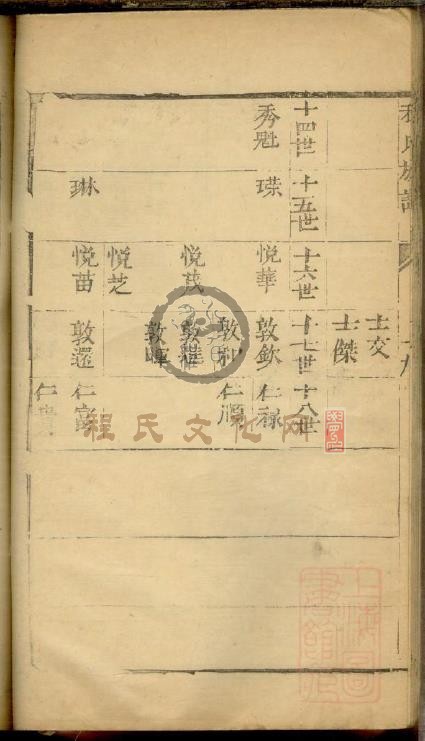 程氏族譜
士交
士傑
十四世 十五世 十六世 十七世 十八世
秀魁 瑛 悅華 敦欽 仁祿
敦和 仁順
悅茂
敦暉
悅芝
琳 悅苗 敦還 仁富
仁貴
程氏文化网
上海圖書館藏